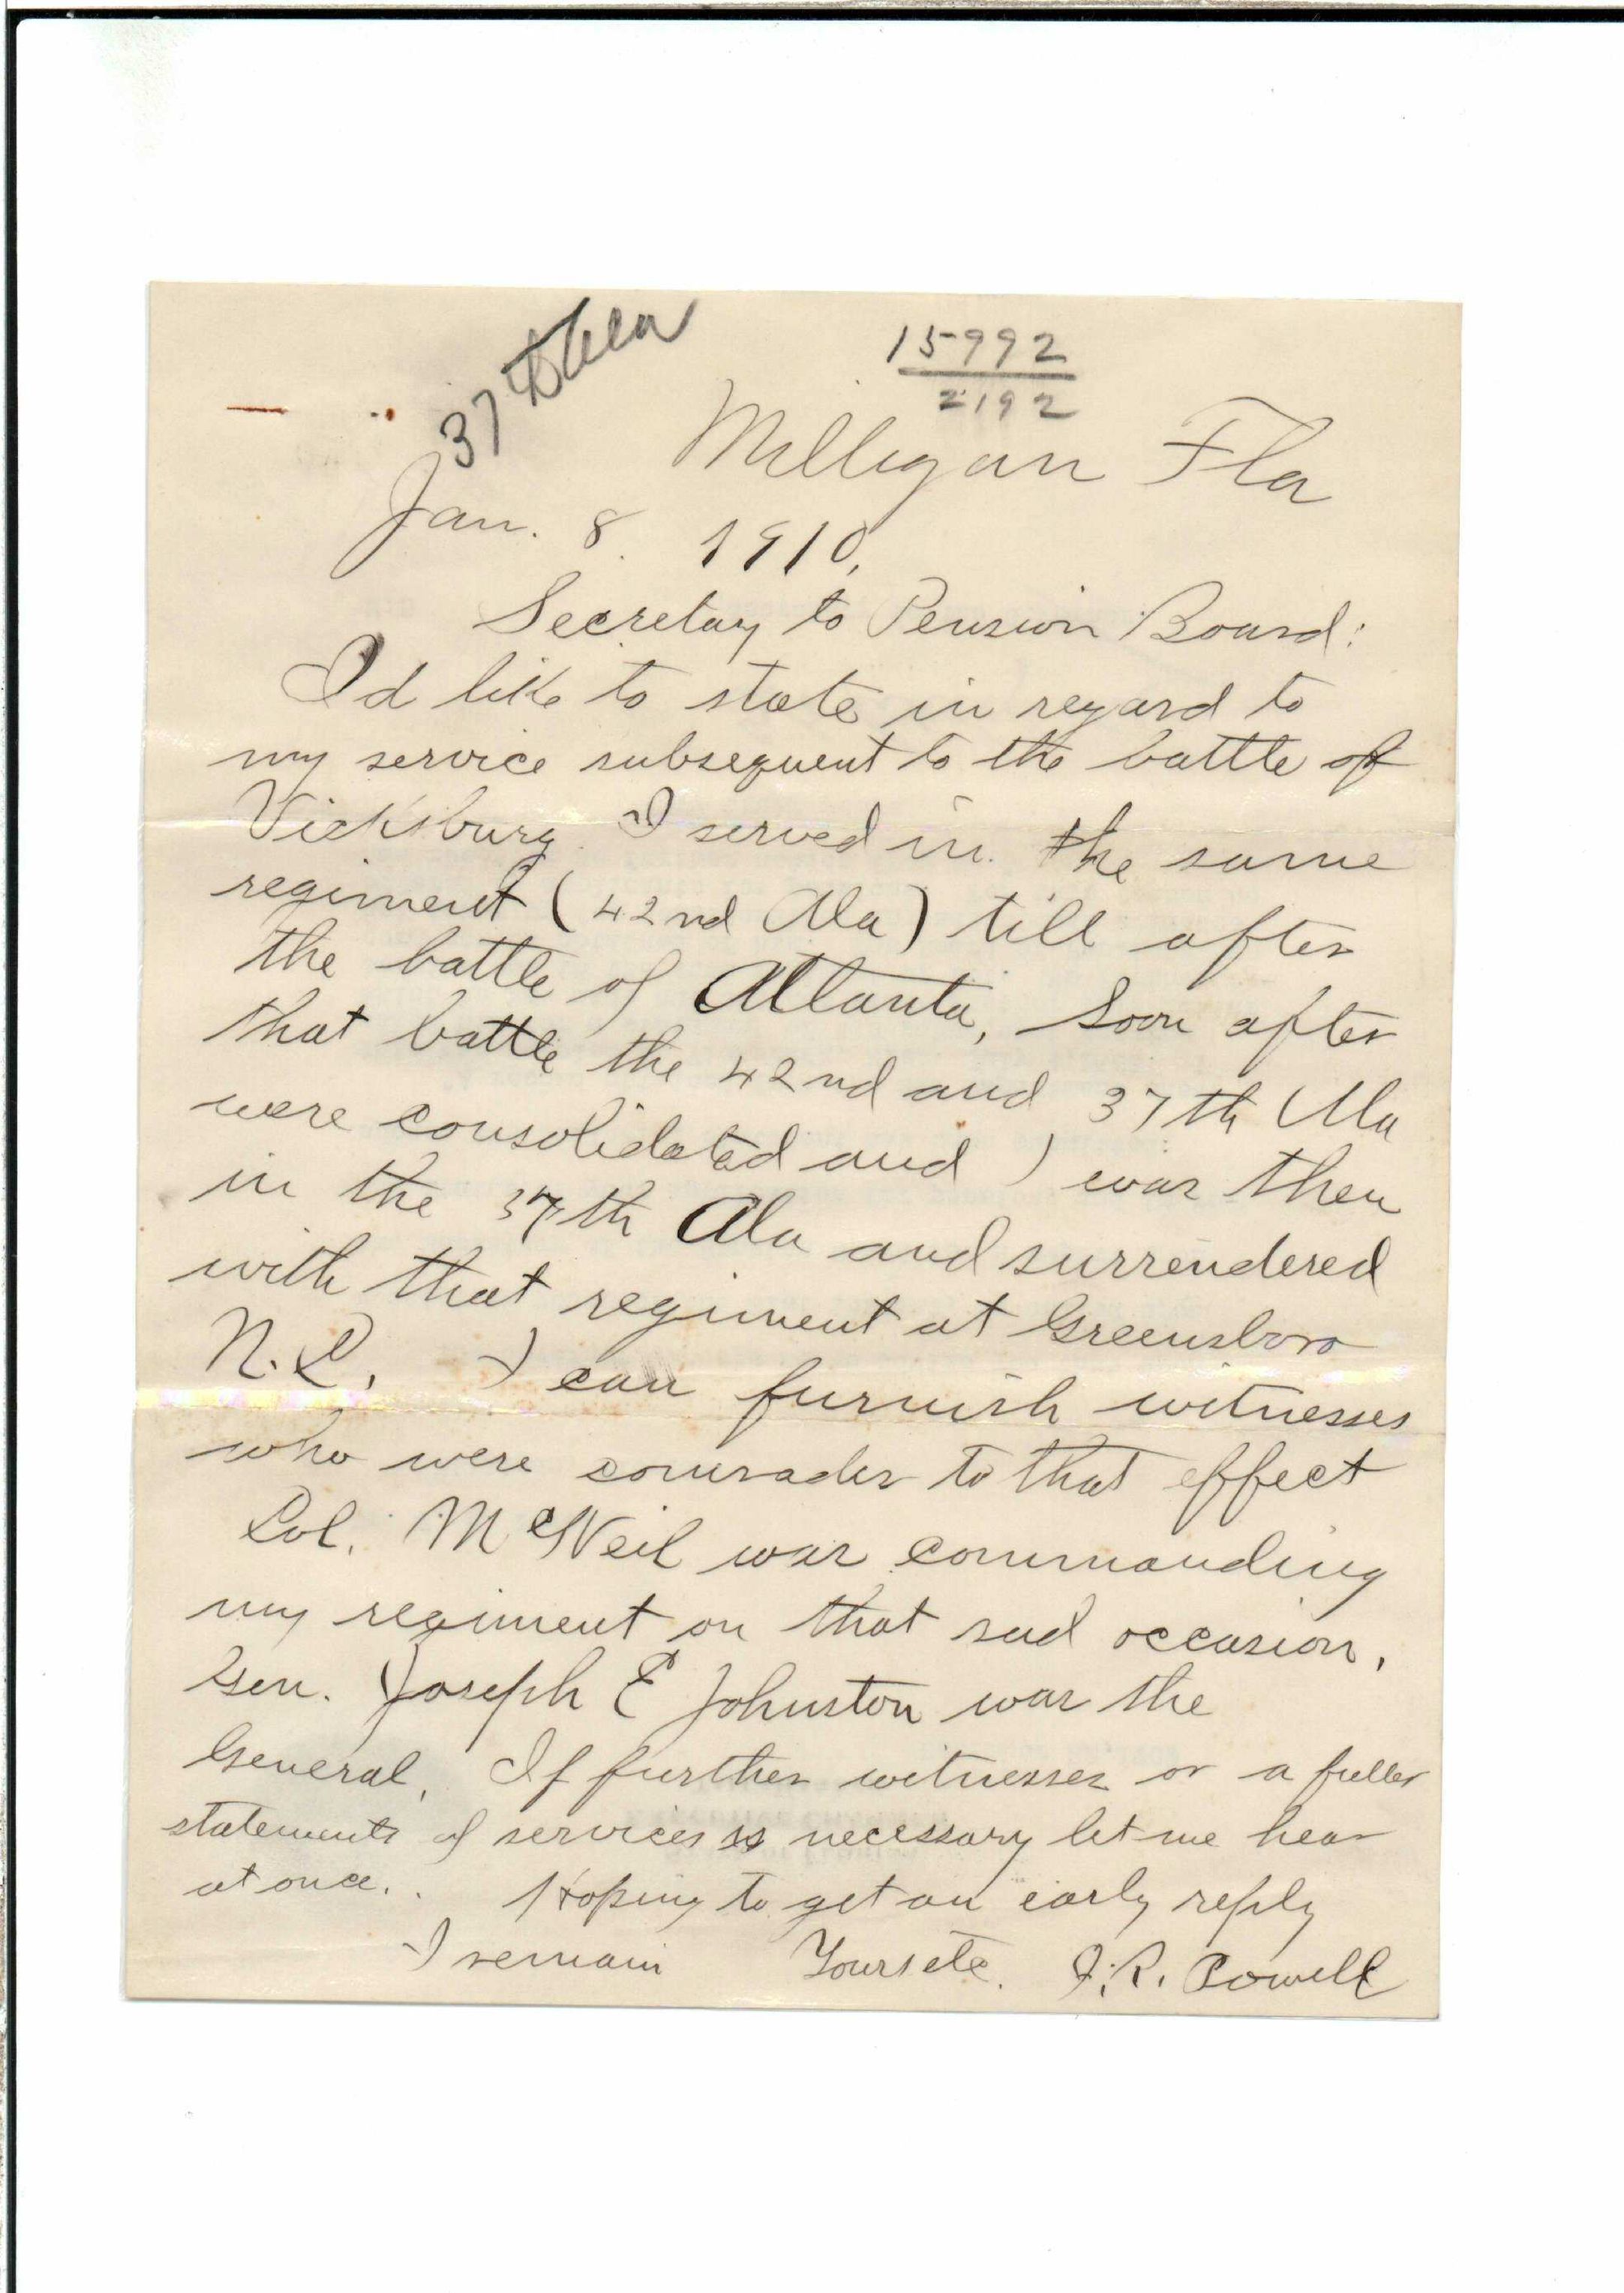 37th Ala
15992
2192
Milligan Fla
Jan. 8. 1910.
Secretay to Pension Board:
I'd like to state in regard to
my service subsequent to the battle of
Vicksburg. I served in the same
regiment (42nd Ala) till after
the battle of Atlanta, Soon after
that battle the 42nd and 37th Ala
were consolidated and I was then
in the 37th Ala and surrendered
with that regiment at Greensboro
N.C. I can furnish witnesses
who were comrades to that effect
Col. McNeil was commanding
my regiment on that sad occasion,
Gen. Joseph E Johnston was the
General. If further witnesses or a fuller
statements of services is necessary let me hear
at once. Hoping to get an early reply
I remain Yours etc. J.R. Powell